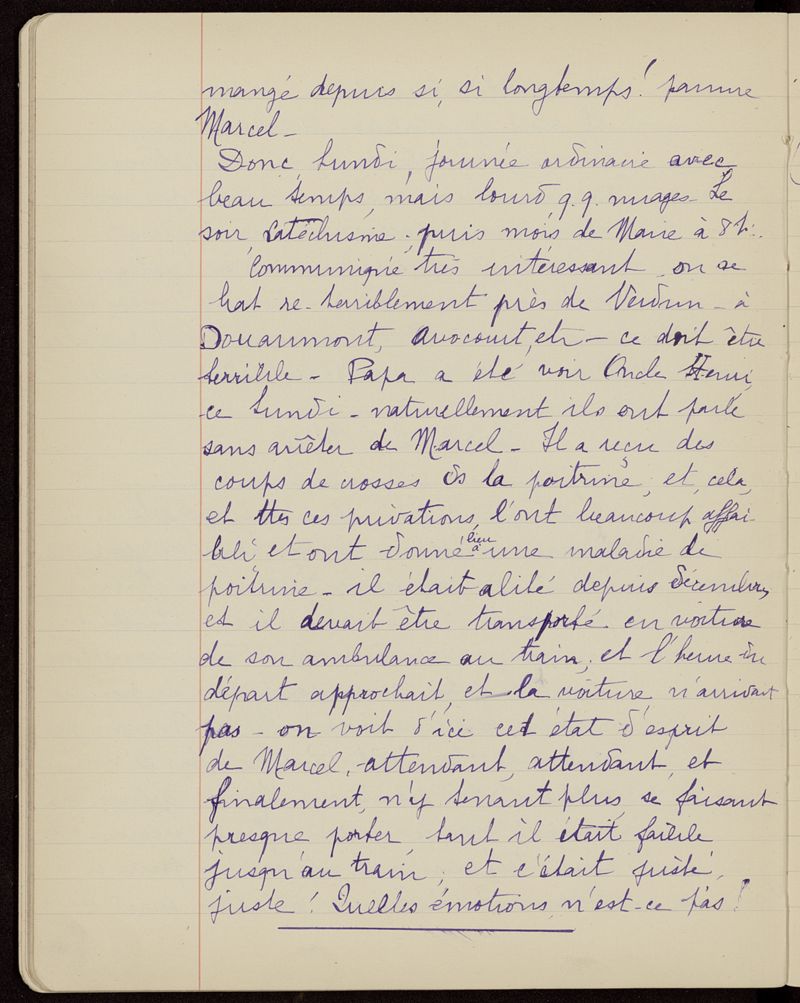 mangé depuis si, si longtemps! pauvre
Marcel -
Donc, lundi, journée ordinaire avec
beau temps, mais lourd q.q. nuages - Le
soir, catéchisme, puis mois de Marie à 8h..
Communiqué très intéressant, on se
bat re-terriblement près de Verdun - à
Douaumont, Avocourt, etc - ce doit être
terrible - Papa a été voir Oncle Henri,
ce lundi - naturellement ils ont parlé
sans arrêter de Marcel - Il a reçu des
coups de crosses ds la poitrine, et, cela,
et ttes ces privations, l'ont beaucoup affai
bli, et ont donné lieu à une maladie de
poitrine - il était alité depuis décembre,
et il devait être transporté en voiture
de son ambulance au train, et l'heure du
départ approchait, et la voiture n'arrivait
pas - on voit d'ici cet état d'esprit
de Marcel, attendant, attendant, et
finalement, n'y tenant plus, se faisant
presque porter, tant il était faible
jusqu'au train, et c'était juste,
juste! Quelles émotions, n'est-ce pas!